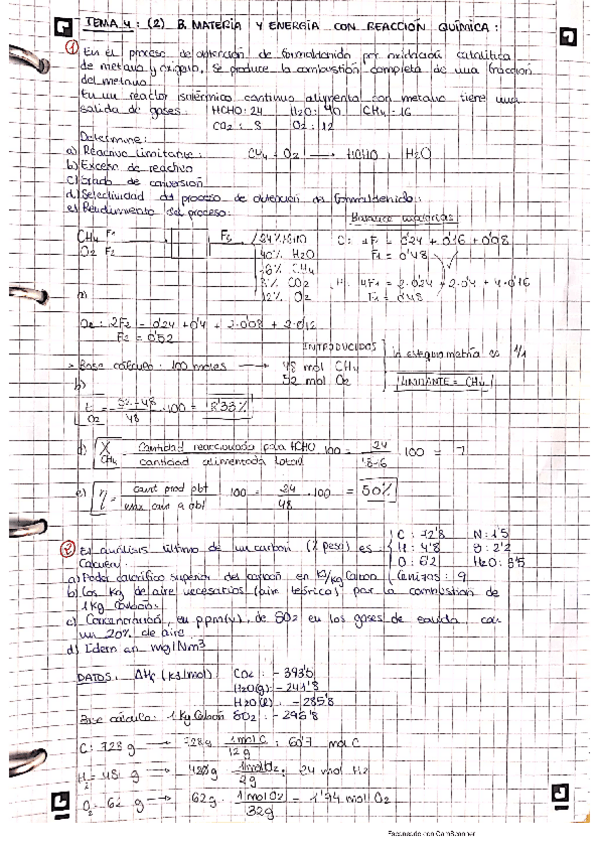 TEMA 4: (2) B. MATERIA Y ENERGÍA CON REACCIÓN QUÍMICA:
① En el proceso de obtención de formaldehído por oxidación catalítica
de metano y oxígeno, se produce la combustión completa de una fracción
del metano.
En un reactor isotérmico continuo alimentado con metano tiene una
salida de gases: HCHO: 24 H2O: 40 CH4: 16
CO2: 8 O2: 12
Determine:
a) Reactivo limitante: CH4 + O2 → HCHO + H2O
b) Exceso de reactivo
c) Grado de conversión
d) Selectividad del proceso de obtención de formaldehído:
e) Rendimiento del proceso:
Balance materias:
CH4 F1 F3 24% HCHO C: 1F1 = 0'24 + 0'16 + 0'08
O2 F2 40% H2O F1 = 0'48
16% CH4
8% CO2 H: 4F1 = 2·0'24 + 2·0'4 + 4·0'16
12% O2 F1 = 0'48
O2: 2F2 = 0'24 + 0'4 + 2·0'08 + 2·0'12
F2 = 0'52
INTRODUCIDOS
Base cálculo: 100 moles → 48 mol CH4 la estequiometría es 1/1
52 mol O2 LIMITANTE = CH4
b)
= 52-48 / 48 · 100 = 8'33%
O2
d) X CH4 = cantidad reaccionada para HCHO / cantidad alimentada total 100 = 24 / 100 =
e) η = cant prod obt / max can a obt 100 = 24/48 · 100 = 50%
② El análisis último de un carbón (% peso) es: C: 72'8 N: 1'5
Calcular: H: 4'8 S: 2'2
O: 6'2 H2O: 3'5
a) Poder calorífico superior del carbón en kJ/kg carbón Cenizas: 9
b) Los kg de aire necesarios (aire teórico) para la combustión de
1 kg carbón.
c) Concentración, en ppm(v), de SO2 en los gases de salida, con
un 20% de aire
d) Idem en mg/Nm3
DATOS: ΔHf (kJ/mol) CO2: -393'5
H2O(g): -241'8
H2O(l): -285'8
Base cálculo: 1 kg carbón SO2: -296'8
C: 728 g → 728g · 1 mol C / 12 g = 60'7 mol C
H2 = 48 g → 1 mol / 2g = 24 mol H2
O2 = 62 g → 62g · 1 mol O2 / 32g = 1'94 mol O2
Escaneado con CamScanner